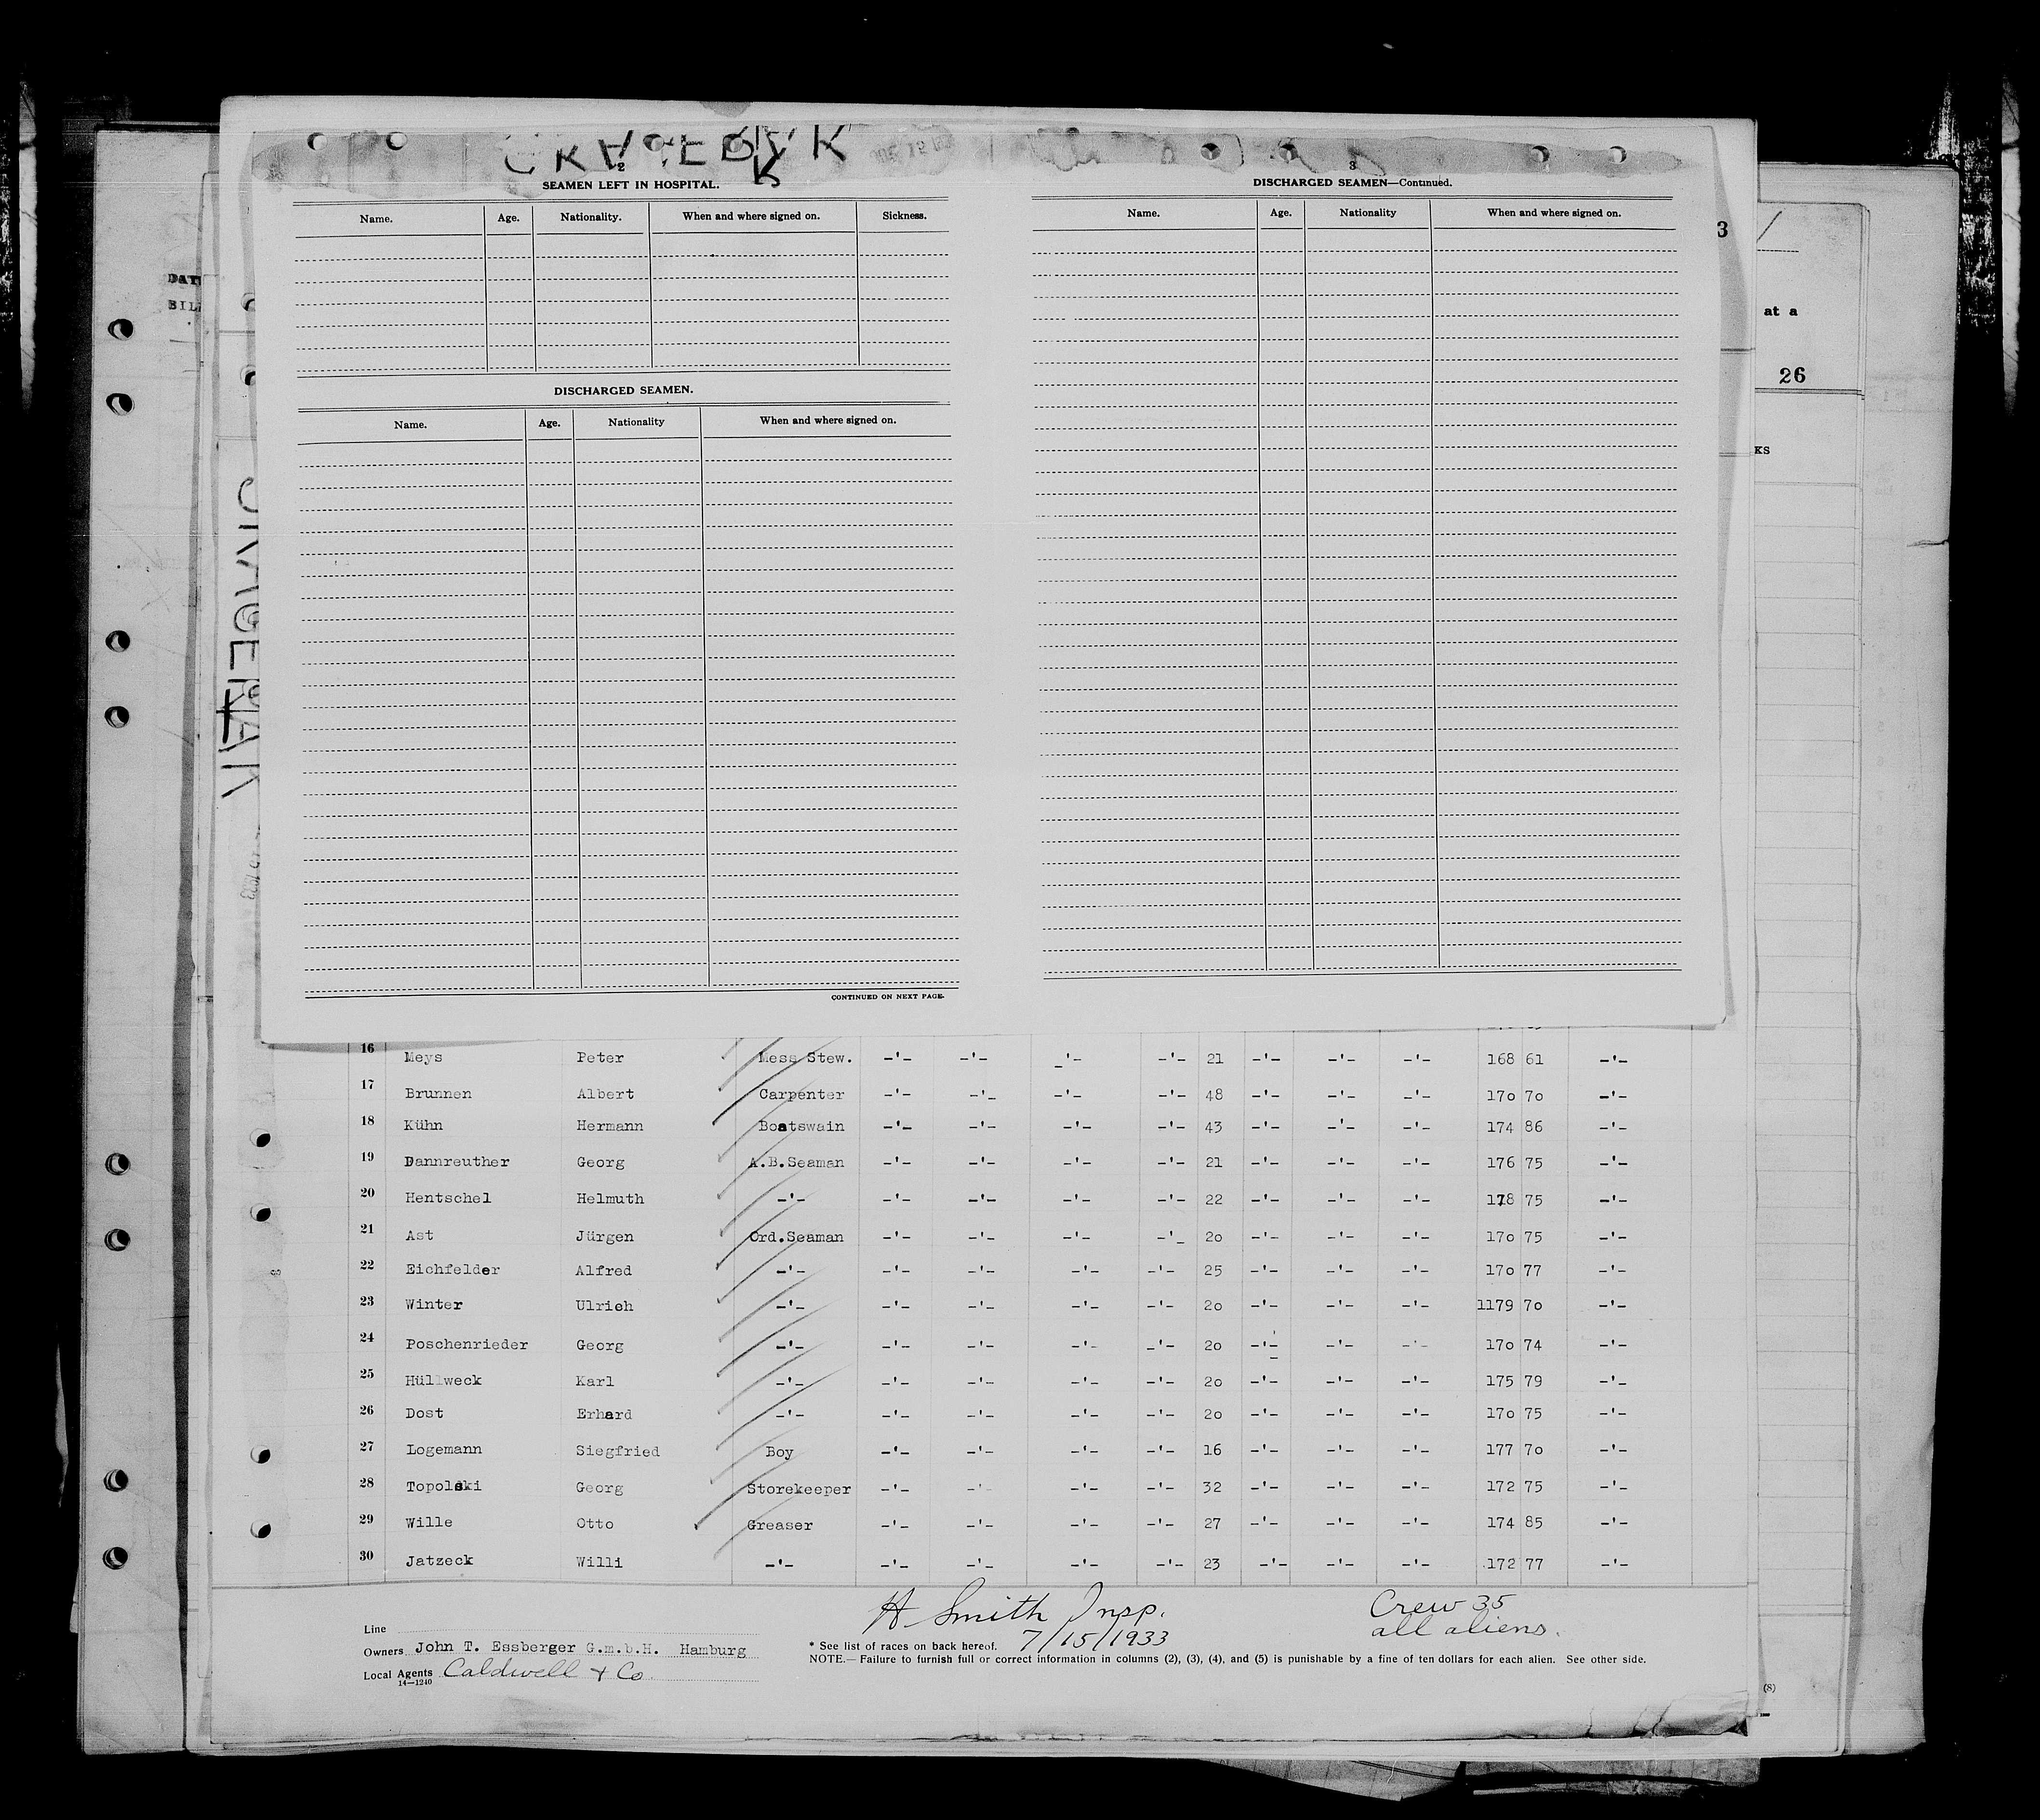 2
SEAMEN LEFT IN HOSPITAL.
Name. Age. Nationality. When and where signed on. Sickness.
DISCHARGED SEAMEN.
Name. Age. Nationality When and where signed on.
CONTINUED ON NEXT PAGE.
3
DISCHARGED SEAMEN—Continued.
Name. Age. Nationality When and where signed on.
3
at a
26
KS
16 Meys Peter Mess Stew. -'- -'- -'- -'- 21 -'- -'- -'- 168 61 -'-
17 Brunnen Albert Carpenter -'- -'- -'- -'- 48 -'- -'- -'- 17o 7o -'-
18 Kühn Hermann Boatswain -'- -'- -'- -'- 43 -'- -'- -'- 174 86 -'-
19 Dannreuther Georg A.B.Seaman -'- -'- -'- -'- 21 -'- -'- -'- 176 75 -'-
20 Hentschel Helmuth -'- -'- -'- -'- -'- 22 -'- -'- -'- 178 75 -'-
21 Ast Jürgen Ord.Seaman -'- -'- -'- -'- 2o -'- -'- -'- 17o 75 -'-
22 Eichfelder Alfred -'- -'- -'- -'- -'- 25 -'- -'- -'- 17o 77 -'-
23 Winter Ulrich -'- -'- -'- -'- -'- 2o -'- -'- -'- 1179 7o -'-
24 Poschenrieder Georg -'- -'- -'- -'- -'- 2o -'- -'- -'- 17o 74 -'-
25 Hüllweck Karl -'- -'- -'- -'- -'- 2o -'- -'- -'- 175 79 -'-
26 Dost Erhard -'- -'- -'- -'- -'- 2o -'- -'- -'- 17o 75 -'-
27 Logemann Siegfried Boy -'- -'- -'- -'- 16 -'- -'- -'- 177 7o -'-
28 Topolski Georg Storekeeper -'- -'- -'- -'- 32 -'- -'- -'- 172 75 -'-
29 Wille Otto Greaser -'- -'- -'- -'- 27 -'- -'- -'- 174 85 -'-
30 Jatzeck Willi -'- -'- -'- -'- -'- 23 -'- -'- -'- 172 77 -'-
H Smith Insp.
7/15/1933
Crew 35
all aliens.
Line
Owners John T. Essberger G.m.b.H. Hamburg
Local Agents Caldwell & Co
14—1240
* See list of races on back hereof.
NOTE.—Failure to furnish full or correct information in columns (2), (3), (4), and (5) is punishable by a fine of ten dollars for each alien. See other side.
(8)